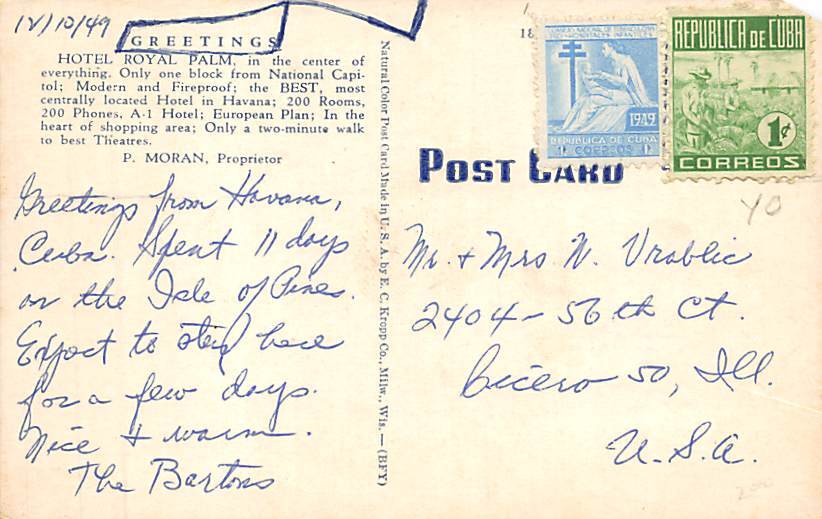 12/10/49
GREETINGS
HOTEL ROYAL PALM, in the center of
everything. Only one block from National Capi-
tol; Modern and Fireproof; the BEST, most
centrally located Hotel in Havana; 200 Rooms,
200 Phones, A-1 Hotel; European Plan; In the
heart of shopping area; Only a two-minute walk
to best Theatres.
P. MORAN, Proprietor
Greetings from Havana,
Cuba. Spent 11 days
on the Isle of Pines.
Expect to stay here
for a few days.
Nice + warm.
The Bartons
Natural Color Post Card Made in U. S. A. by E. C. Kropp Co., Milw., Wis. — (BFY)
18
1949
REPUBLICA DE CUBA
1c CORREOS 1c
REPUBLICA DE CUBA
1¢
CORREOS
POST CARD
YO
Mr. + Mrs W. Vrablic
2404 - 56th Ct.
Cicero 50, Ill.
U.S.A.